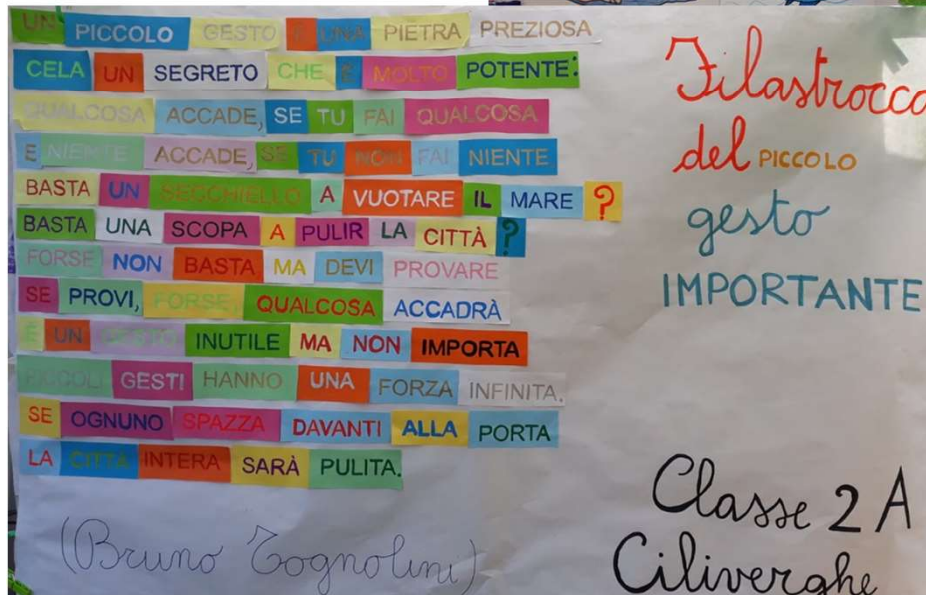 UN PICCOLO GESTO È UNA PIETRA PREZIOSA
CELA UN SEGRETO CHE È MOLTO POTENTE:
QUALCOSA ACCADE, SE TU FAI QUALCOSA
E NIENTE ACCADE, SE TU NON FAI NIENTE
BASTA UN SECCHIELLO A VUOTARE IL MARE ?
BASTA UNA SCOPA A PULIR LA CITTÀ ?
FORSE NON BASTA MA DEVI PROVARE
SE PROVI, FORSE, QUALCOSA ACCADRÀ
È UN GESTO INUTILE MA NON IMPORTA
PICCOLI GESTI HANNO UNA FORZA INFINITA.
SE OGNUNO SPAZZA DAVANTI ALLA PORTA
LA CITTÀ INTERA SARÀ PULITA.
(Bruno Tognolini)
Filastrocca
del PICCOLO
gesto
IMPORTANTE
Classe 2 A
Ciliverghe